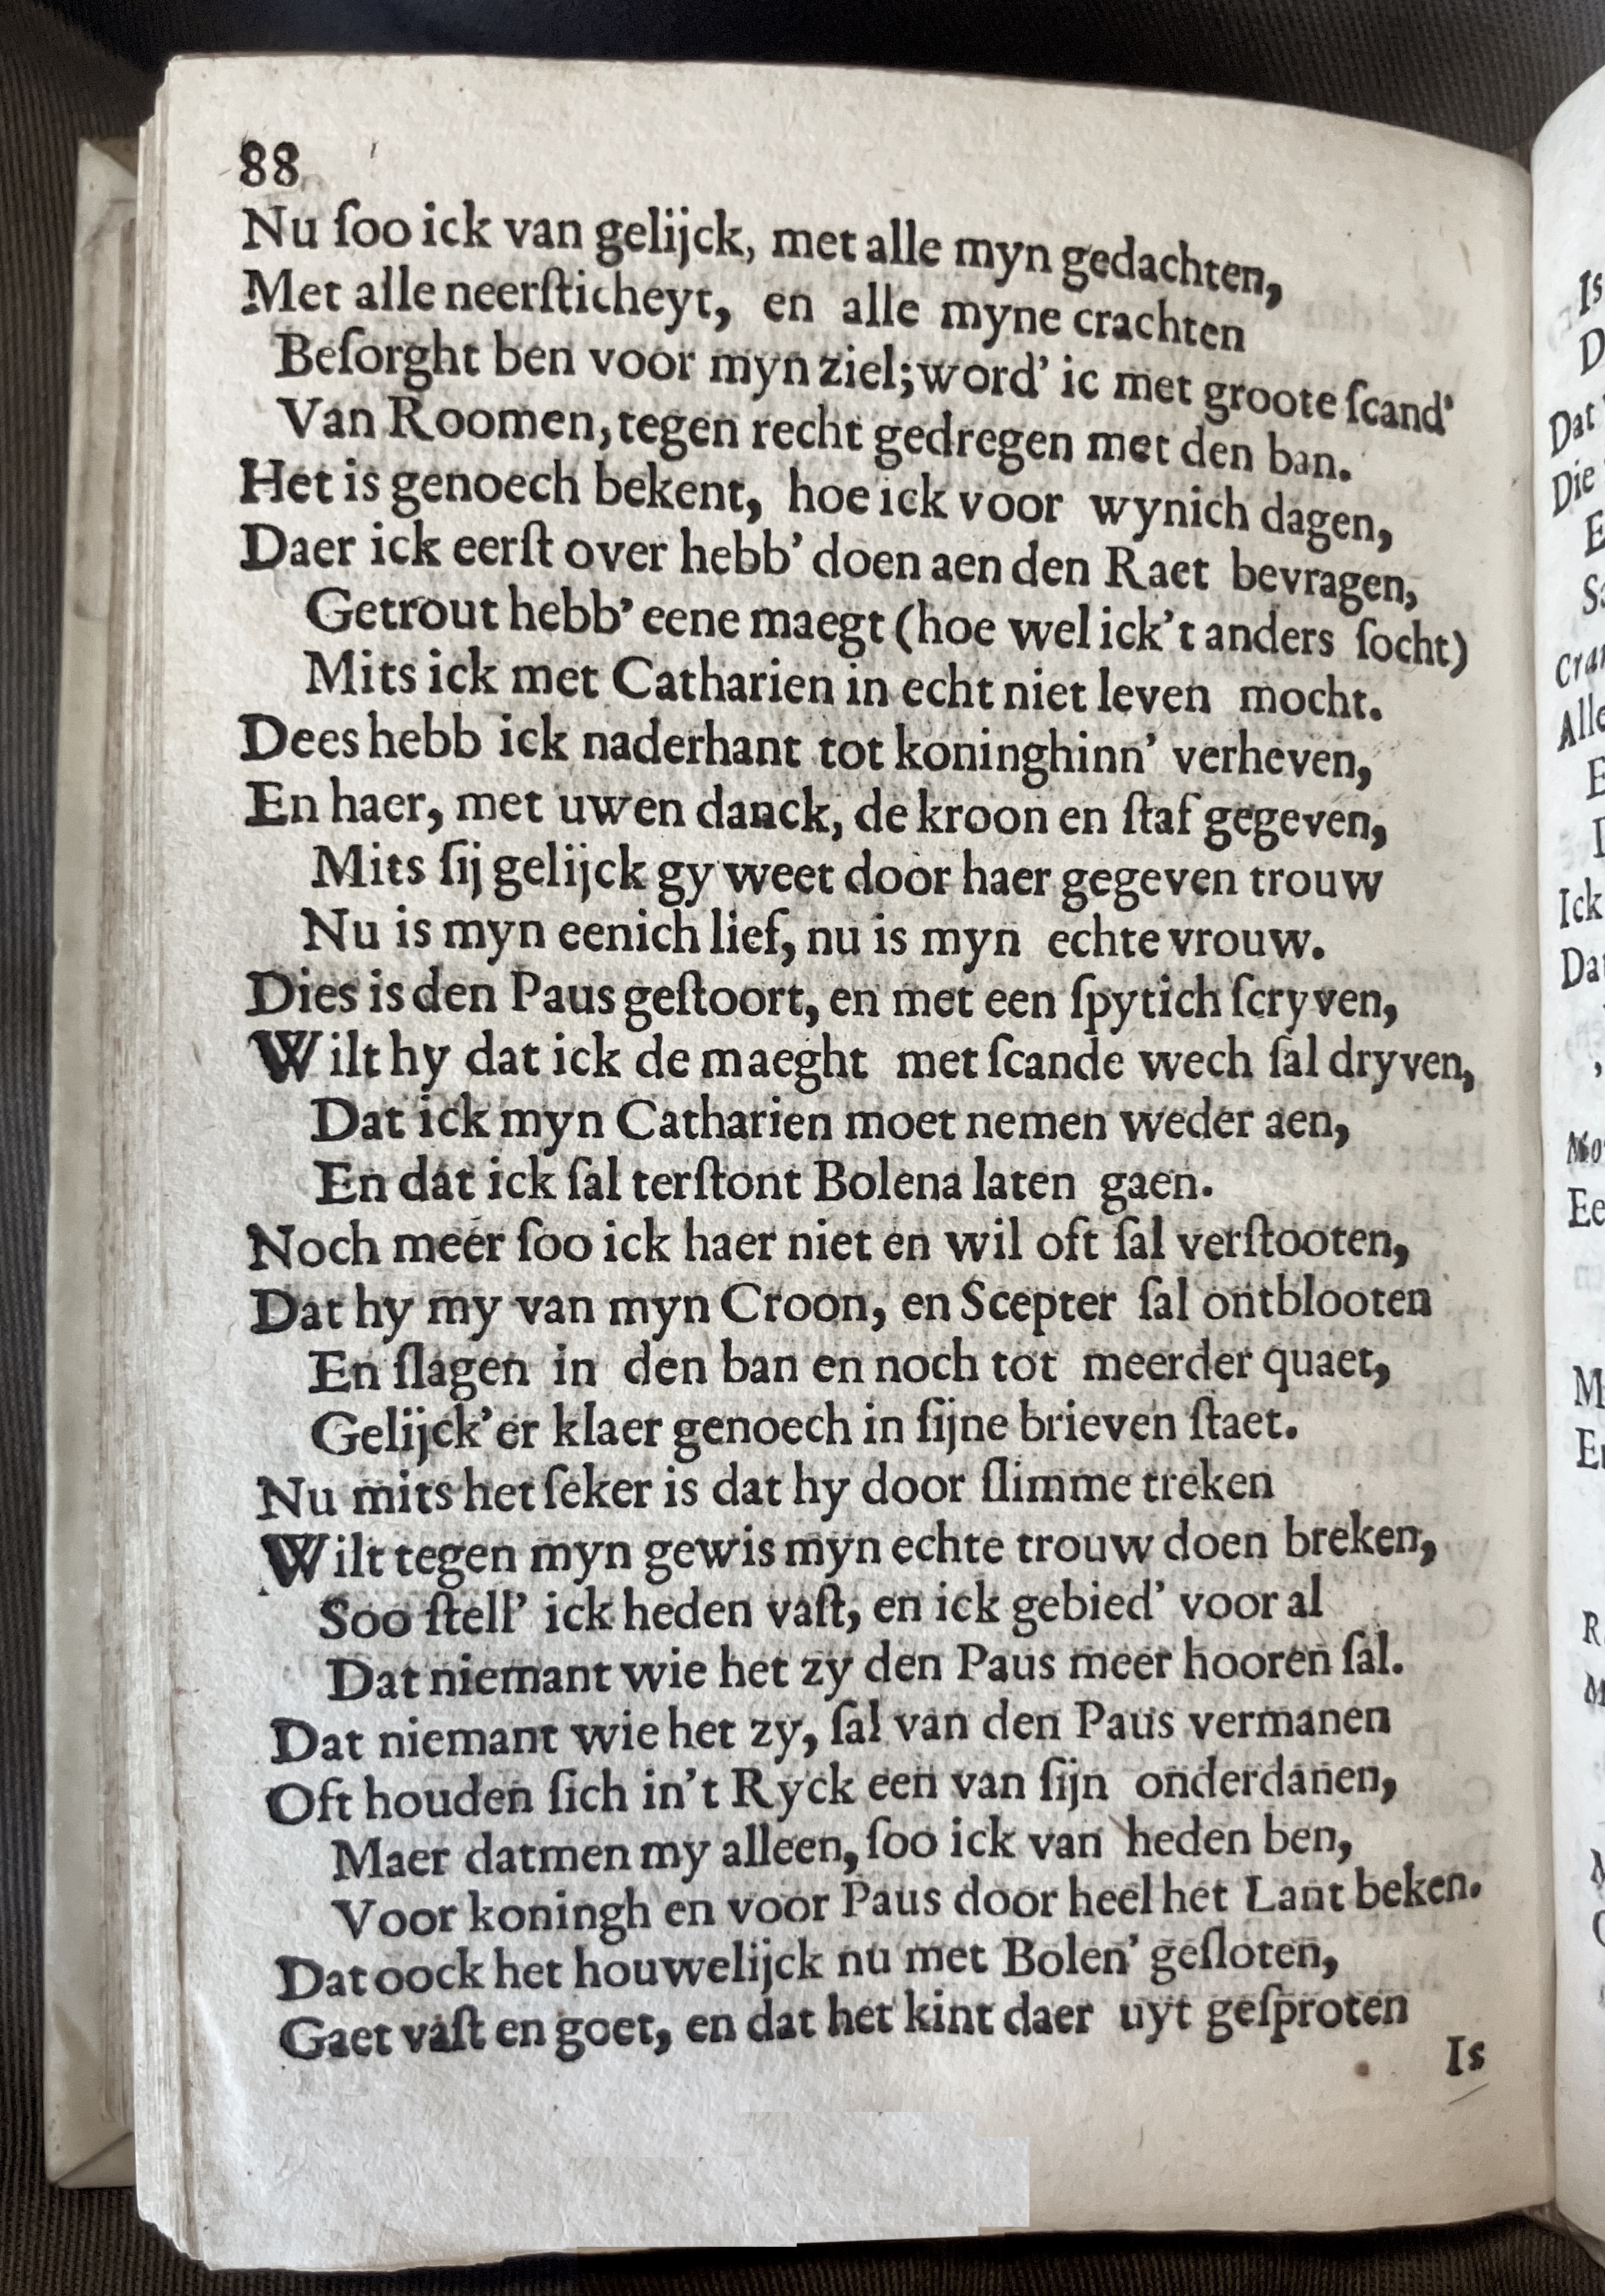 88
Nu ſoo ick van gelijck, met alle myn gedachten,
Met alle neerſticheyt, en alle myne crachten
Beſorght ben voor myn ziel; word' ic met groote ſcand'
Van Roomen, tegen recht gedregen met den ban.
Het is genoech bekent, hoe ick voor wynich dagen,
Daer ick eerſt over hebb' doen aen den Raet bevragen,
Getrout hebb' eene maegt (hoe wel ick't anders ſocht)
Mits ick met Catharien in echt niet leven mocht.
Dees hebb ick naderhant tot koninghinn' verheven,
En haer, met uwen danck, de kroon en ſtaf gegeven,
Mits ſij gelijck gy weet door haer gegeven trouw
Nu is myn eenich lief, nu is myn echte vrouw.
Dies is den Paus geſtoort, en met een ſpytich ſcryven,
Wilt hy dat ick de maeght met ſcande wech ſal dryven,
Dat ick myn Catharien moet nemen weder aen,
En dat ick ſal terſtont Bolena laten gaen.
Noch meer ſoo ick haer niet en wil oft ſal verſtooten,
Dat hy my van myn Croon, en Scepter ſal ontblooten
En ſlagen in den ban en noch tot meerder quaet,
Gelijck'er klaer genoech in ſijne brieven ſtaet.
Nu mits het ſeker is dat hy door ſlimme treken
Wilt tegen myn gewis myn echte trouw doen breken,
Soo ſtell' ick heden vaſt, en ick gebied' voor al
Dat niemant wie het zy den Paus meer hooren ſal.
Dat niemant wie het zy, ſal van den Paus vermanen
Oft houden ſich in't Ryck een van ſijn onderdanen,
Maer datmen my alleen, ſoo ick van heden ben,
Voor koningh en voor Paus door heel het Lant beken.
Dat oock het houwelijck nu met Bolen' geſloten,
Gaet vaſt en goet, en dat het kint daer uyt geſproten
Is